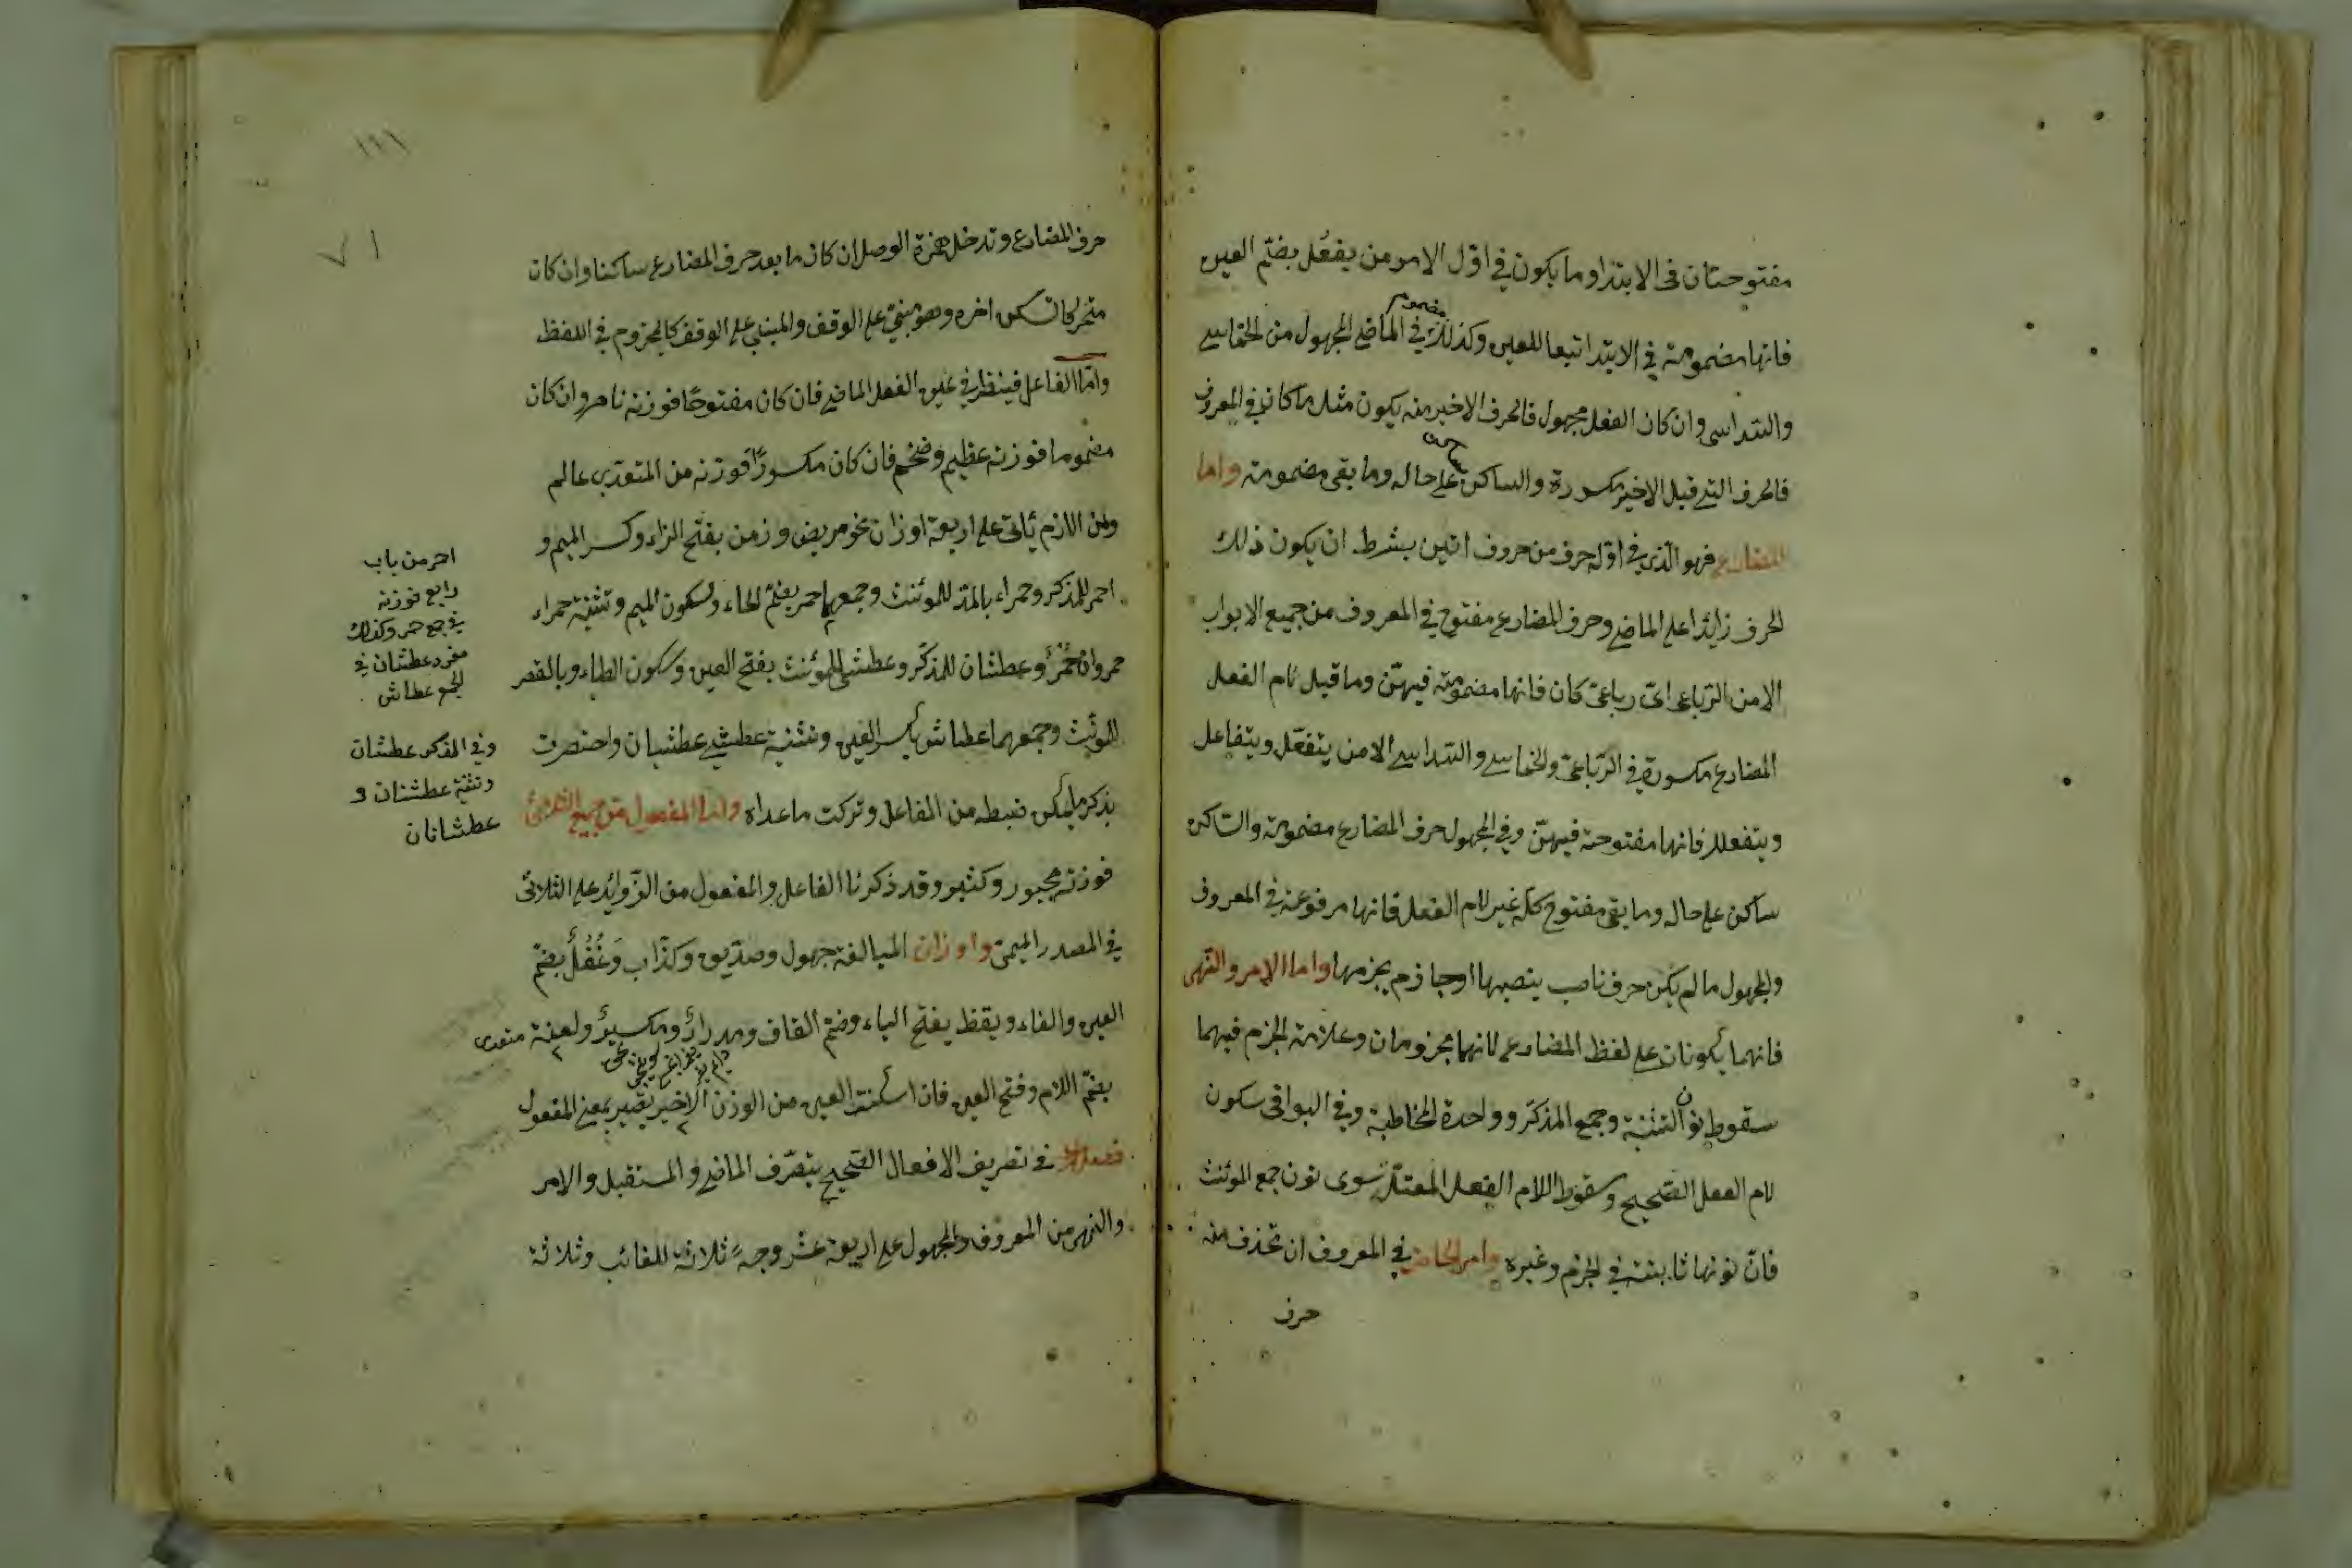 مفتوحتان فى الابتدا وما يكون فى اوّل الامر من يفعُل بضمّ العين
فانها مضمومة فى الابتدا تبعا للعين وكذلك فى الماضى المجهول من الخماسى
مضموم
والسّداسى وان كان الفعل مجهول فالحرف الاخير منه يكون مثل ما كان فى المعروف
فالحرف التى قبل الاخير مكسورة والساكن على حاله وما بقى مضمومة واما
ساكن
المضارع فهو الّذى فى اوّله حرف من حروف اتين بشرط ان يكون ذلك
الحرف زائدا على الماضى وحرف المضارع مفتوح فى المعروف من جميع الابواب
الا من الرّباعى اىّ رباعىّ كان فانها مضمومة فيهنّ وما قبل لام الفعل
المضارع مكسورة فى الرّباعىّ والخماسى والسّداسى الا من يتفعّل ويتفاعل
ويتفعلل فانها مفتوحة فيهنّ وفى المجهول حرف المضارع مضمومة والسّاكن
ساكن على حاله وما بقى مفتوح كله غير لام الفعل فانها مرفوعة فى المعروف
والمجهول ما لم يكن حرف ناصب ينصبها او جازم يجزمها واما الامر والنّهى
فانهما يكونان على لفظ المضارع لانهما مجزومان وعلامة الجزم فيهما
سقوط نون التثنية وجمع المذكّر وواحدة المخاطبة وفى البواقى سكون
لام الفعل الصّحيح وسقوط اللام الفعل المعتلّ سوى نون جمع المؤنث
فانّ نونها ثابتة فى الجزم وغيره وامر الحاضر فى المعروف ان تحذف منه
حرف
١١١
٧١
حرف المضارع وتدخل همزة الوصل ان كان ما بعد حرف المضارع ساكنا وان كان
متحركا تسكن اخره وهو مبنىّ على الوقف والمبنى على الوقف كالمجزوم فى اللفظ
وامّا الفاعل فينظر فى عين الفعل الماضى فان كان مفتوحًا فوزنه ناصر وان كان
مضموما فوزنه عظيم وضخم فان كان مكسورًا فوزنه من المتعدّى عالم
ومن اللازم يأتى على اربعة اوزان نحو مريض وزمن بفتح الزاء وكسر الميم و
احمر للمذكر وحمراء بالمدّ للمؤنث وجمعهما حمر بضمّ الحاء وسكون الميم وتثنية حمراء
حمروان وعطشان للمذكّر وعطشى للمؤنث بفتح العين وسكون الطاء وبالقصر
للمؤنث وجمعهما عطاش بكسر العين وتثنية عطشى عطشيان واختصرت
بذكر ما يمكن ضبطه من المفاعل وتركت ما عداه واما المفعول من جميع الثلاثى
فوزنه مجبور وكثير وقد ذكرنا الفاعل والمفعول من الزّوائد على الثلاثى
فى المصدر الميمى واوزان المبالغة جهول وصدّيق وكذّاب وغُفُلٌ بضمّ
العين والفاء ويقظ بفتح الياء وضمّ القاف ومدرارٌ ومكسيرٌ ولعنة
بضمّ اللام وفتح العين فان اسكنت العين من الوزن الاخير يصير بمعنى المفعول
فصل فى تصريف الافعال الصّحيح يتصرّف الماضى والمستقبل والامر
والنهى من المعروف والمجهول على اربعة عشر وجهً ثلاثة للغائب وثلاثة
احمر من باب
رابع فوزنه
فى جمع حمر وكذلك
مفرد عطشان فى
الجمع عطاش
وفى المذكر عطشان
وتثنية عطشنان و
عطشانان